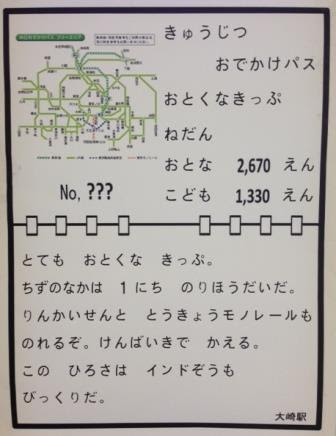 きゅうじつ
おでかけパス
おとくなきっぷ
ねだん
おとな 2,670 えん
こども 1,330 えん
No, ???
とても おとくな きっぷ。
ちずのなかは 1にち のりほうだいだ。
りんかいせんと とうきょうモノレールも
のれるぞ。けんばいきで かえる。
この ひろさは インドぞうも
びっくりだ。
大崎駅